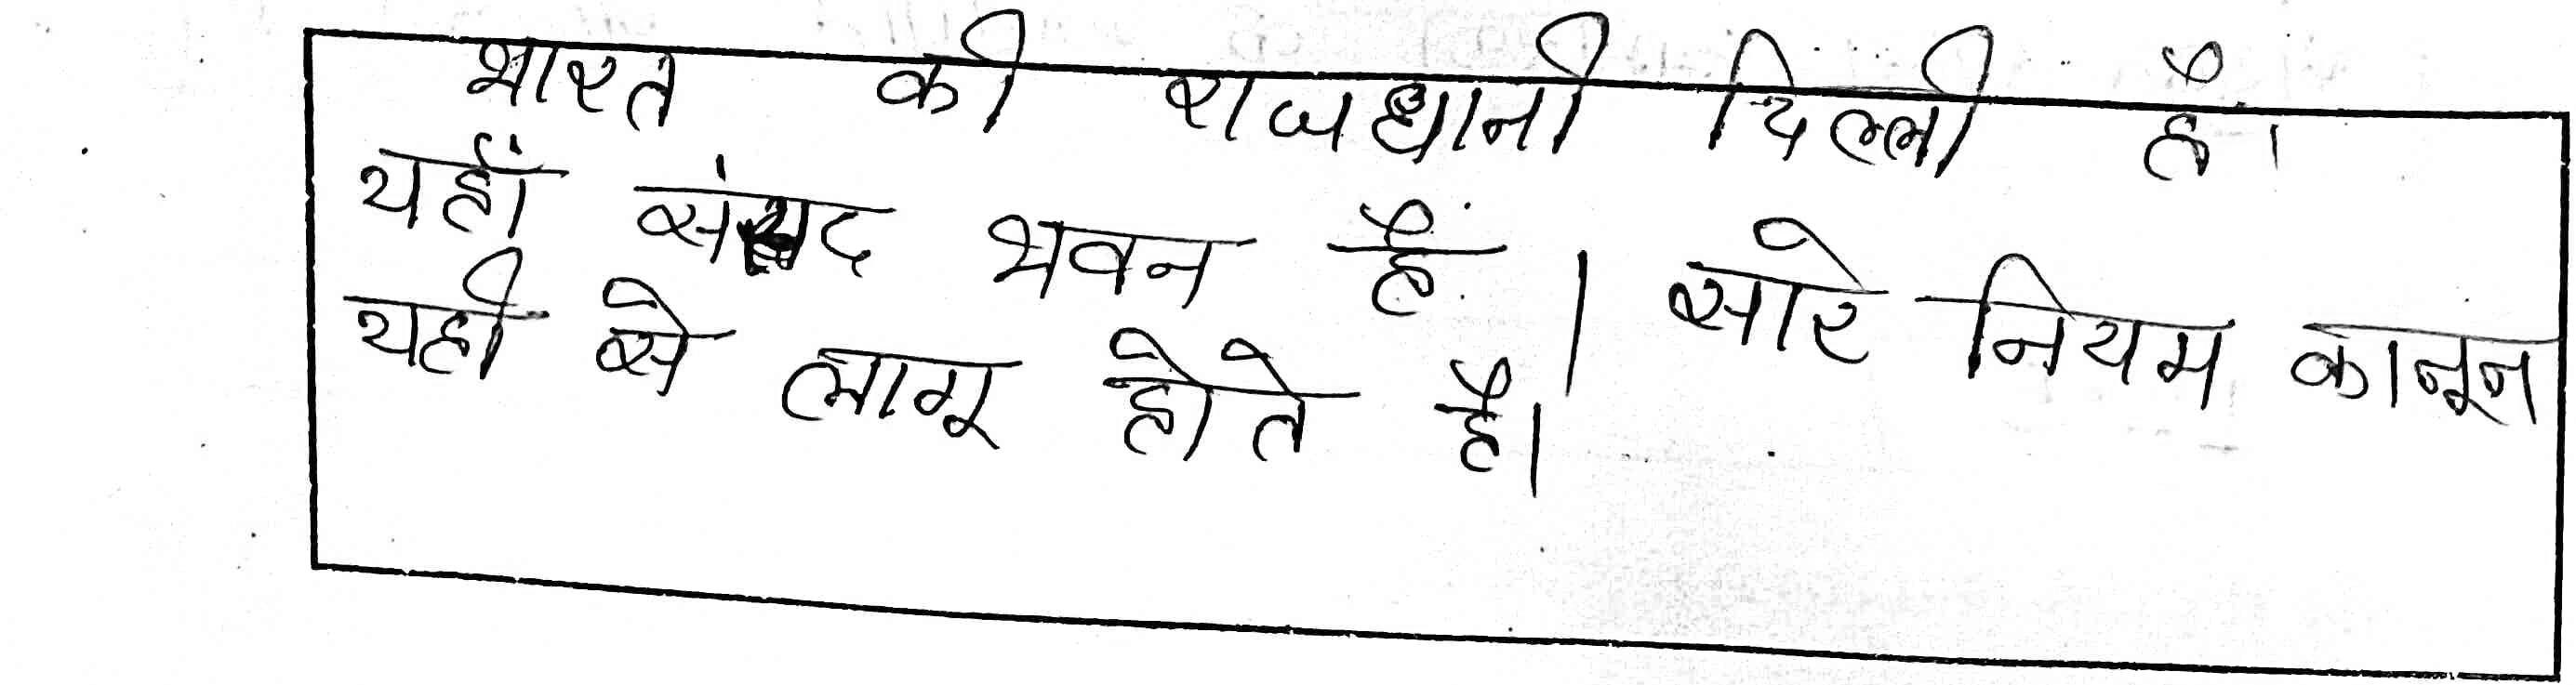 भारत की राजधानी दिल्ली है।
यहाँ संसद भवन है। सारे नियम कानून
यही से लागू होते है।